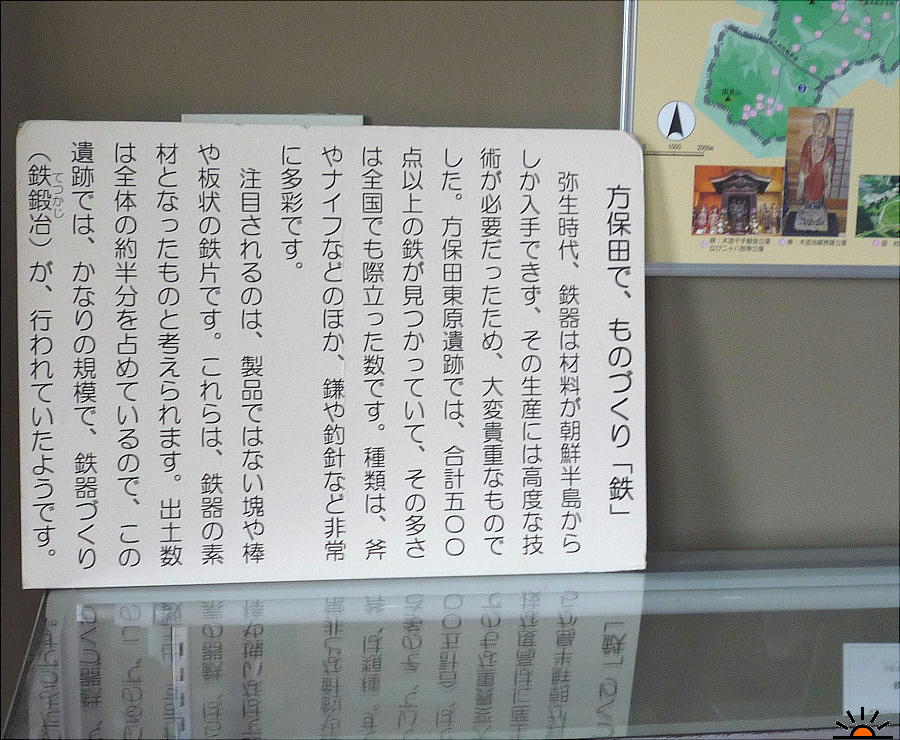 方保田で、ものづくり「鉄」
弥生時代、鉄器は材料が朝鮮半島から
しか入手できず、その生産には高度な技
術が必要だったため、大変貴重なもので
した。方保田東原遺跡では、合計五〇〇
点以上の鉄が見つかっていて、その多さ
は全国でも際立った数です。種類は、斧
やナイフなどのほか、鎌や釣針など非常
に多彩です。
注目されるのは、製品ではない塊や棒
や板状の鉄片です。これらは、鉄器の素
材となったものと考えられます。出土数
は全体の約半分を占めているので、この
遺跡では、かなりの規模で、鉄器づくり
（鉄鍛冶）が、行われていたようです。
てつかじ
1000 2000m